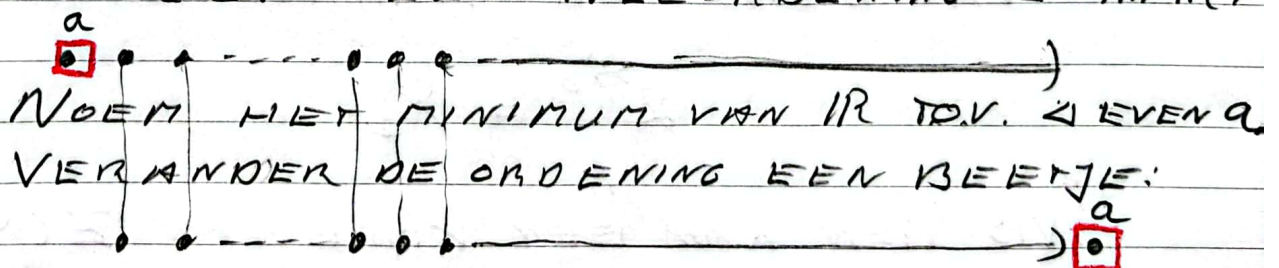 a
NOEM HET MINIMUM VAN ℝ T.O.V. ◁ EVEN a.
VERANDER DE ORDENING EEN BEETJE:
a